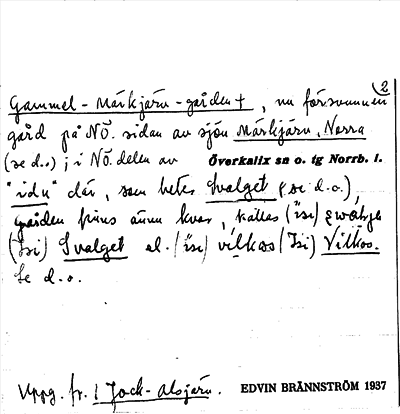 2
Gammel-Märkjärv-gården +, nu försvunnen
gård på NÖ. sidan av sjön Märkjärv, Norra
(se d.o.); i NÖ. delen av Överkalix sn o. tg Norrb. l.
"idu" där, som hetes Svalget (se d.o.),
gården finns ännu kvar, kallas (isi)
(isi) Svalget el. (isi) vilkås (Isi) Vilkås.
Se d.o.
Uppg. fr. 1 Jock-Alsjärv. EDVIN BRÄNNSTRÖM 1937